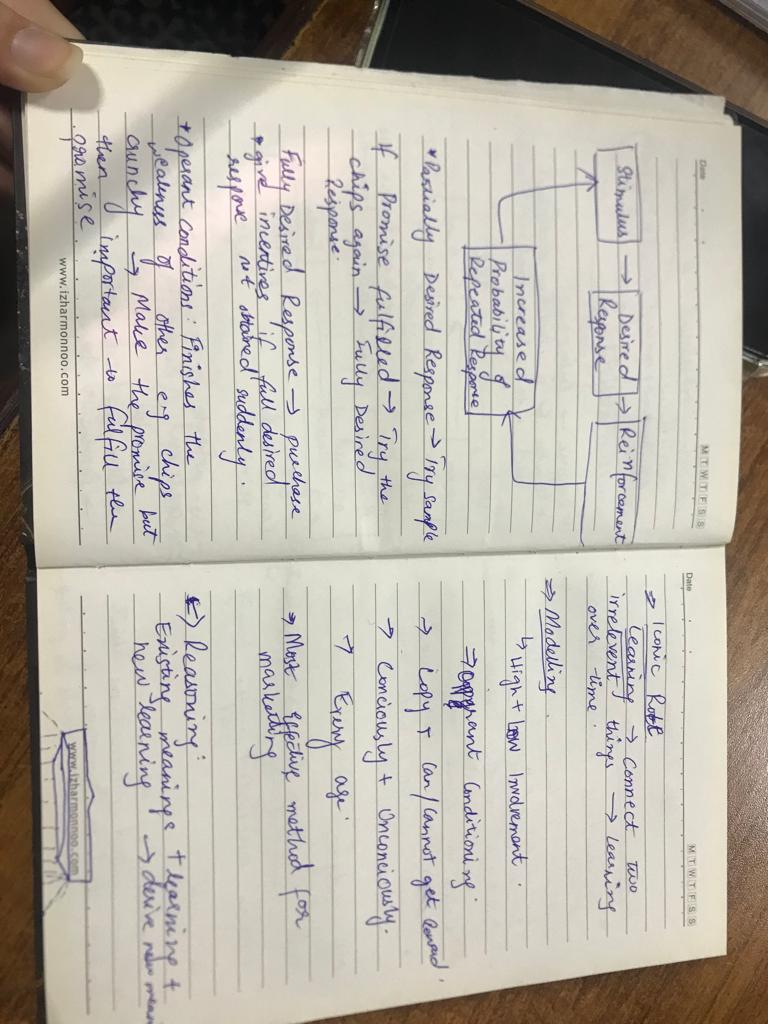 Date
M T W T F S S
Stimulus → Desired Response → Reinforcement
Increased
Probability of
Repeated Response
* Partially Desired Response → Try sample
If Promise fulfilled → Try the
chips again → Fully Desired
Response.
Fully Desired Response → purchase
* give incentives if full desired
respone not obtained suddenly.
* Operant conditions: Finishes the
weakness of other erg chips
crunchy → Make the promise but
then important to fulfill the
promise
www.izharmonnoo.com
Date
M T W T F S S
⇒ Iconic Rote
Learning → Connect two
irrelevent things → Learning
over time.
⇒ Modelling.
↳ High + Low Involvement.
⇒ Opperant Conditioning.
→ Copy + Can/Cannot get Reward.
→ Conciously + Unconciously.
→ Every age.
→ Most Effective method for
marketting
⇒ Reasoning:
Existing meanings + learning +
new learning → derive new mean
www.izharmonnoo.com